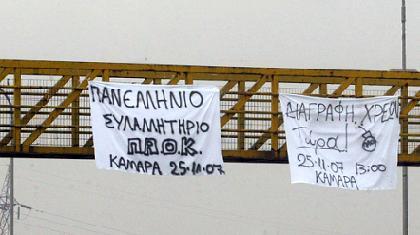 ΠΑΝΕΛΛΗΝΙΟ
ΣΥΛΛΑΛΗΤΗΡΙΟ
Π.Α.Ο.Κ.
ΚΑΜΑΡΑ 25·11·07
ΔΙΑΓΡΑΦΗ ΧΡΕΩΝ
Τώρα!
25·11·07 13:00
ΚΑΜΑΡΑ